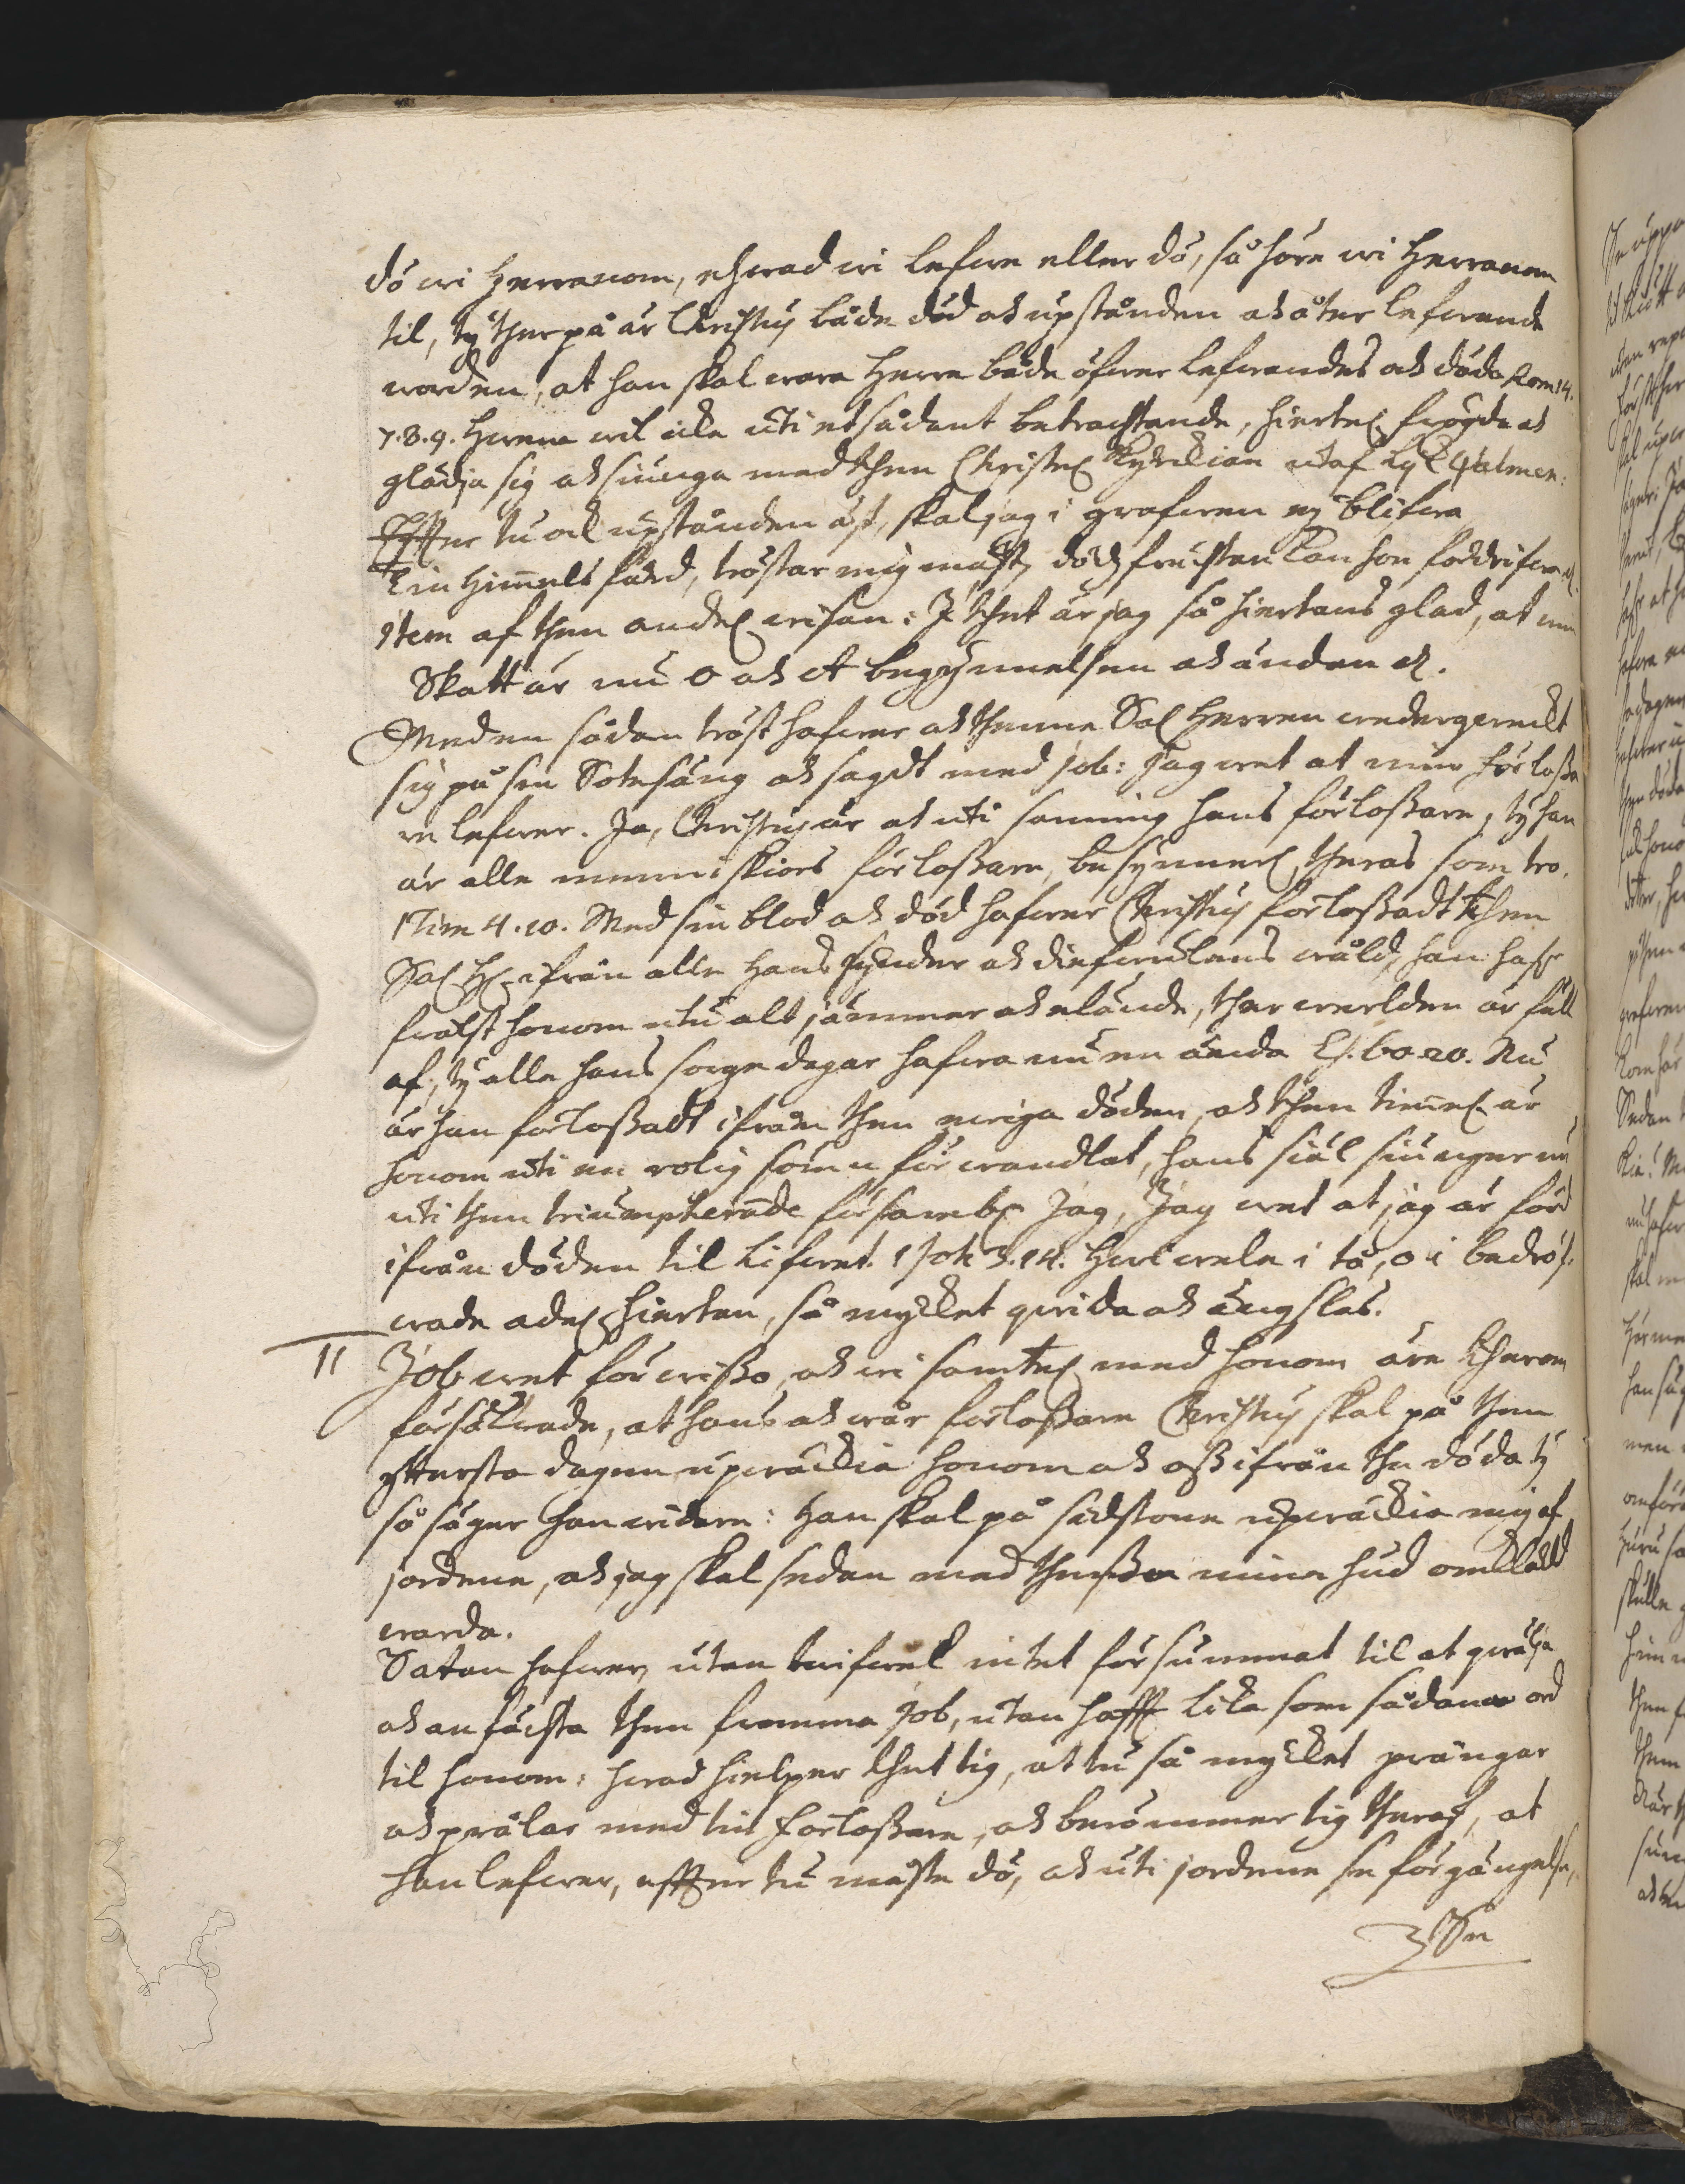 dö wi Herranom, ehwad wi lefwe eller dö, så höre wi Herranom
til, ty ther på är Christus både död och upstånden och åter lefwande
worden, at han skal wara Herre både öfwer lefwandes och döda Rom 14.
7.8.9. Hwem wil icke uti et sådant betrachtande, hiertel. frögda och
glädja sig och siunga med then Christel. Kyrckian utaf lyk Psalmen:
Effter tu och upstånden äst, skal jag i grafwen ey blifwa
Tin Himmels färd, tröstar mig mäst, dödzfruchtan kan hon fördrifwa etc.
Item af then andel. wisan: I thet är jag så hiertans glad, at min
Skatt är nu O och A begynnelsen och ändan etc.
Med en sådan tröst hafwer och thenne Sal. Herren wederqweckt
sig på sin Sotesäng och sagdt med Job: Jag wet at min förlossa
re lefwer. Ja, Christus är och uti sanning hans förlossare, ty han
är alle menniskiors förlossare, besynnerl. theras som tro.
1 Tim 4.10. Med sin blod och död hafwer Christus förlossadt then
Sal. H. ifrån alle hans synder och diefwulens wåld, han hafr
frälst honom utu alt jämmer och elände, ther werlden är full
af, ty alle hans sorgedagar hafwa nu en ända Es. 60.20. Nu
är han förlossadt ifrån then ewiga döden, och then timmel. är
honom uti en rolig sömn förwandlat, hans siäl siunger nu
uti then triumpherande försambl. Jag, Jag wet at jag är förd
ifrån döden til Lifwet. 1 Joh 3.14. Hwi wele i tå, o i bedröf
wade adel. hiertan, så mycket qwida och ängslas.
II Job wet för wisso, och wi samtel. med honom äre therom
försäkrade, at hans och wår förlossare Christus skal på then
yttersta dagen upwäckia honom och oss ifrån the döda ty
så säger han widare: Han skal på sidstone upwäckia mig af
jordene, och jag skal sedan med thesse mine hud omklädd
warda.
Satan hafwer, utan twifwel intet försummat til at qwälja
och anfächta then fromma Job, utan hafft lika som sådane ord
til honom: hwad hielper thet tig, at tu så mycket prängar
och prålar med tin förlossare, och berömmer tig theraf, at
han lefwer, effter tu måste dö, och uti jordene se förgängelse,
Se